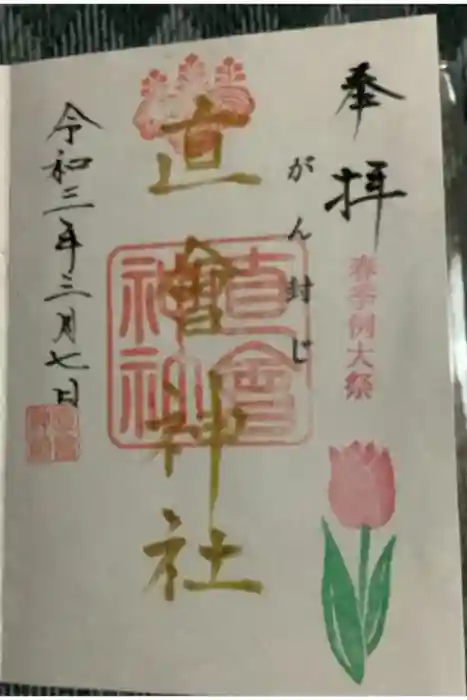 奉拝
春季例大祭
がん封じ
直會神社
直會神社
令和三年三月七日